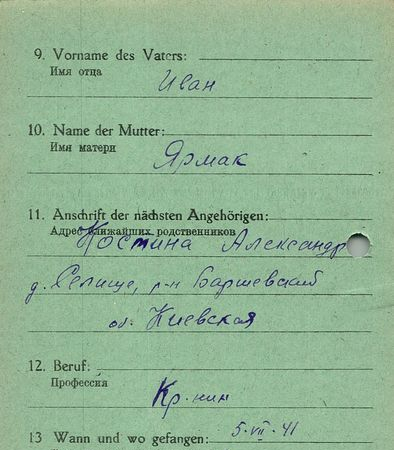 9. Vorname des Vaters:
Имя отца
Иван
10. Name der Mutter:
Имя матери
Ярмак
11. Anschrift der nächsten Angehörigen:
Адрес ближайших родственников
Костина Александр
д. Селище, р-н Баршевский
об. Киевская
12. Beruf:
Профессия
Кр-нин
13 Wann und wo gefangen: 5-VII-41